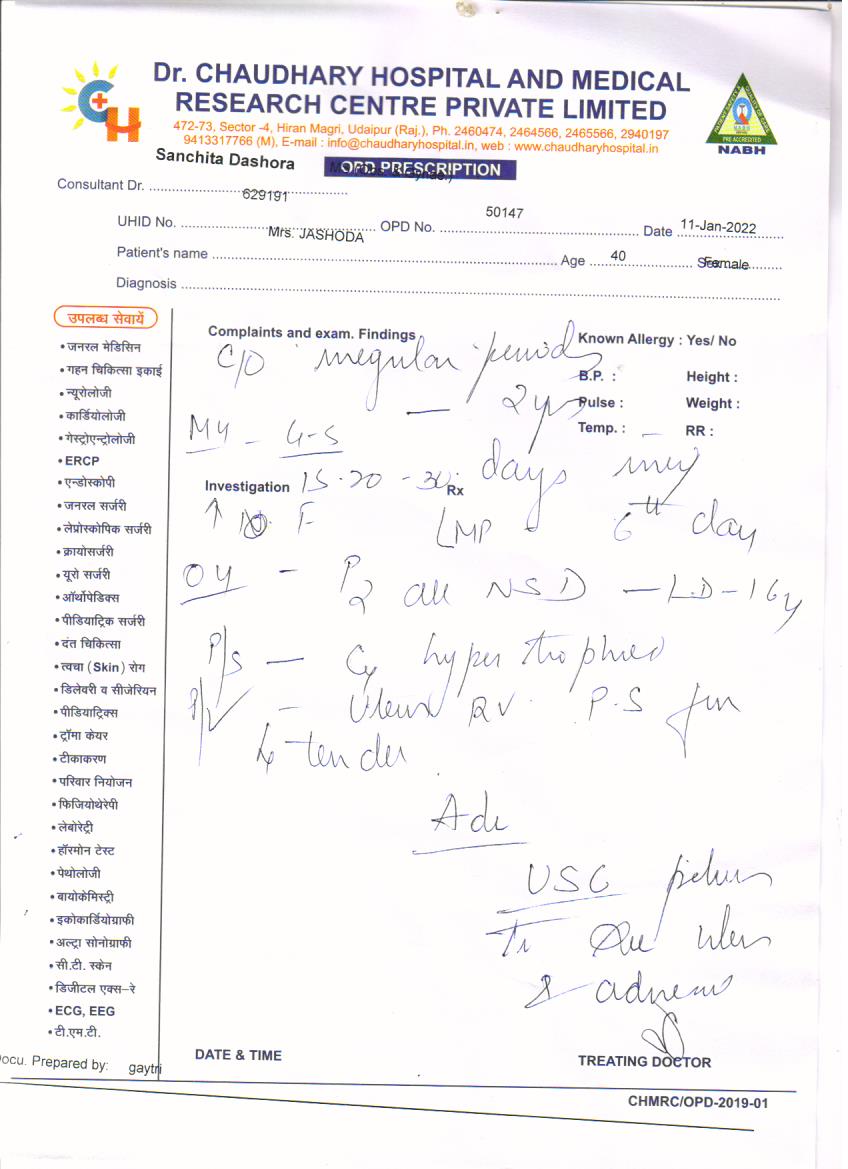 Dr. CHAUDHARY HOSPITAL AND MEDICAL
RESEARCH CENTRE PRIVATE LIMITED
472-73, Sector -4, Hiran Magri, Udaipur (Raj.), Ph. 2460474, 2464566, 2465566, 2940197
9413317766 (M), E-mail : info@chaudharyhospital.in, web : www.chaudharyhospital.in
NABH
PRE ACCREDITED
NABH
Sanchita Dashora
OPD PRESCRIPTION
Consultant Dr.
629191
50147
UHID No. OPD No. Date 11-Jan-2022
Mrs. JASHODA
Patient's name Age 40 Sex Female
Diagnosis
उपलब्ध सेवायें
• जनरल मेडिसिन
• गहन चिकित्सा इकाई
• न्यूरोलोजी
• कार्डियोलोजी
• गेस्ट्रोएन्ट्रोलोजी
• ERCP
• एन्डोस्कोपी
• जनरल सर्जरी
• लेप्रोस्कोपिक सर्जरी
• क्रायोसर्जरी
• यूरो सर्जरी
• ऑर्थोपेडिक्स
• पीडियाट्रिक सर्जरी
• दंत चिकित्सा
• त्वचा (Skin) रोग
• डिलेवरी य सीजेरियन
• पीडियाट्रिक्स
• ट्रॉमा केयर
• टीकाकरण
• परिवार नियोजन
• फिजियोथेरेपी
• लेबोरेट्री
• हॉरमोन टेस्ट
• पेथोलोजी
• बायोकेमिस्ट्री
• इकोकार्डियोग्राफी
• अल्ट्रा सोनोग्राफी
• सी.टी. स्केन
• डिजीटल एक्स-रे
• ECG, EEG
• टी.एम.टी.
Complaints and exam. Findings Known Allergy : Yes/ No
C/O irregular period
B.P. : Height :
— 2 yrs Pulse : Weight :
Temp. : RR :
MH - 4-5
days
Investigation 15-20-30 Rx
LMP - 6th day
OH - P2 all NSD - LD - 16y
P/S — Cx hypertrophied
P/V - Uterus RV. P.S
tender
Adv
USG pelvis
& adnexa
DATE & TIME TREATING DOCTOR
Docu. Prepared by: gaytri
CHMRC/OPD-2019-01